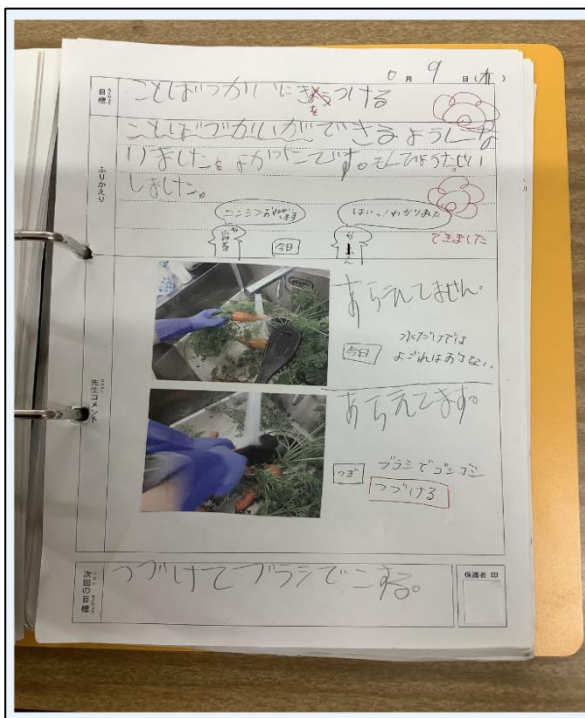 6月9日(木)
目標
ことばづかいにきをつける
ふりかえり
ことばづかいができるようにな
りました。よかったです。
しました。
ニンジンおねがいします
はいっ!わかりました
今日
できました
先生コメント
あらえてません。
今日
水だけでは
よごれはおちない。
あらえてます。
つぎ
ブラシでゴシゴシ
つづける
次回の目標
つづけてブラシでこする。
保護者 印